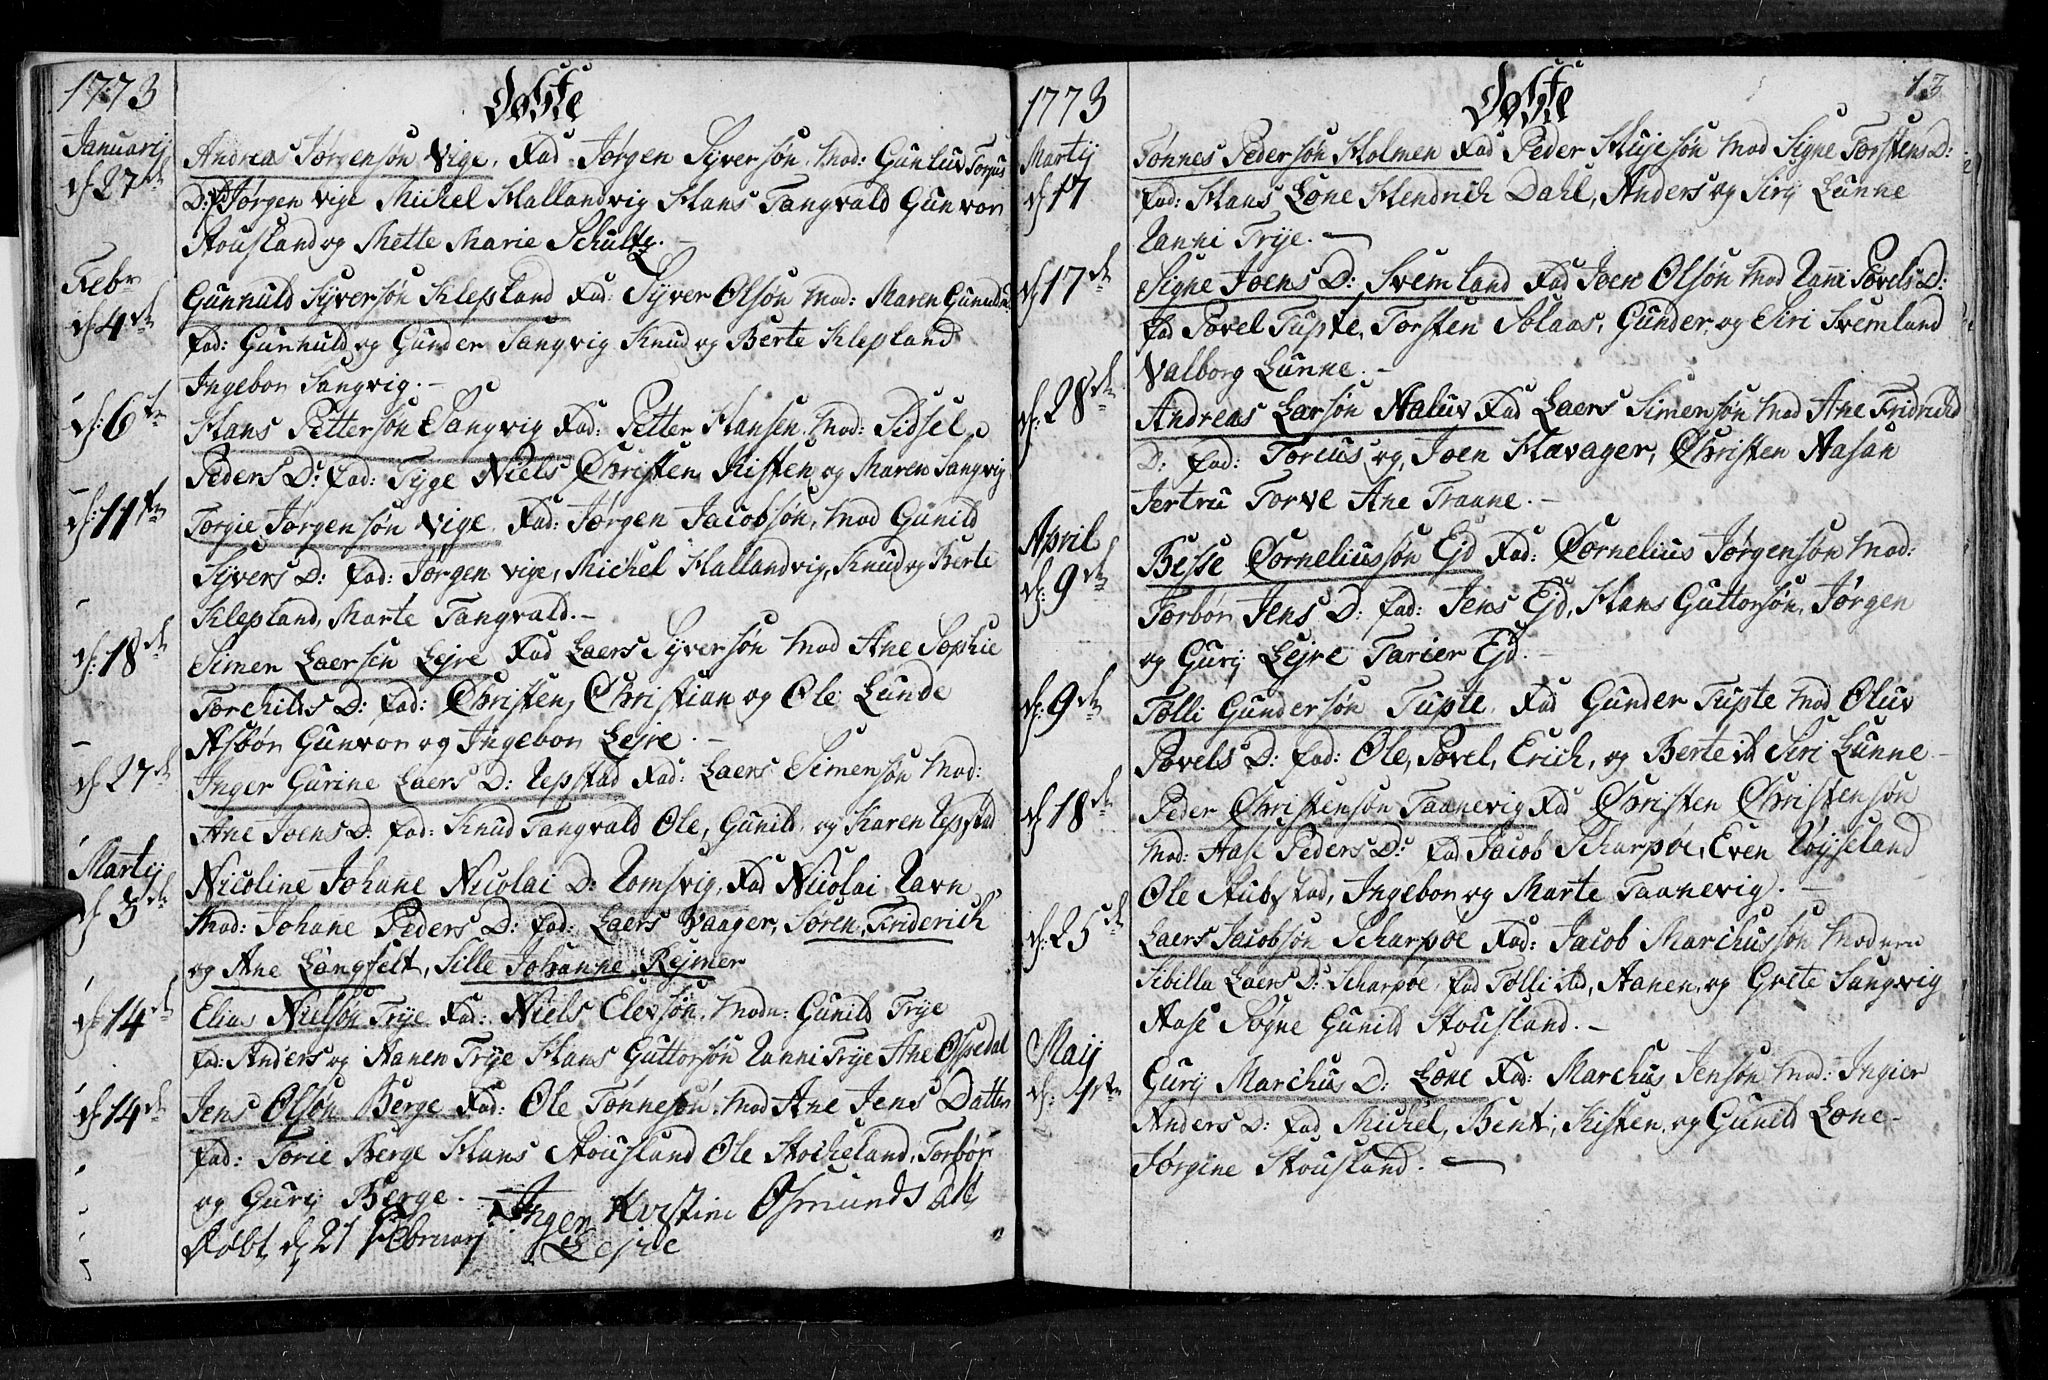 1773
Døbte
Januarij
d. 27de
Andreas Jørgensøn Vige. Fad: Jørgen Syversøn. Mod: Gunluv Torjus
D: Fad: Jørgen Vige Michel Hallandvig Hans Tangvald Gunvor
Stousland og Mette Marie Schultz. –
Febr
d. 4de
Gunnuld Syversøn Klepland Fad: Syver Olsøn Mod: Maren Gunnulds
fad: Gunnuld og Gunder Sangvig Knud og Berte Klepland
Ingebor Sangvig. –
d. 6te
Hans Pettersøn Sangvig Fad: Petter Hansen. Mod: Sidsel
Peders D: fad: Tyge Niels Christen Kisten og Maren Sangvig
d. 11te
Torgie Jørgensøn Vige. Fad: Jørgen Jacobsøn, Mod Gunild
Syvers D: fad: Jørgen Vige, Michel Hallandvig, Knud og Berte
Klepland, Marte Tangvald. –
d. 18de
Simen Laersen Lejre Fad Laers Syversøn Mod Ane Sophie
Torchilds D: fad: Christen, Christian og Ole Lunde
Asbør Gunvor og Ingebor Lejre. –
d. 27de
Inger Gurine Laers D: Repstad Fad: Laers Simensøn Mod:
Ane Joens D: fad: Knud Tangvald Ole, Gunild og Karen Repstad
Martij
d. 5de
Nicoline Johane Nicolai D: Romsvig, Fad Nicolai Ravn
Mod: Johane Peders D: fad: Laers Vaager, Søren, Friderich
og Ane Langfelt, Sille Johanne Rejmer
d. 14de
Elias Nielsøn Trye Fad: Niels Elevsøn. Modr: Gunild Trye
fad: Anders og Aanen Trye Hans Guttorsøn Ranni Trye Ane Ospedal
d. 14de
Jens Olsøn Berge Fad: Ole Tønnesøn. Mod Ane Jens Datter
fad: Torie Berge Hans Stousland Ole Stocheland, Torbør
og Gurij Berge. – Inger Kirstine Osmunds datt
Døbt d. 21 Februarij Lejre
1773
Døbte
13
Martij
d. 17
Tønnes Pedersøn Holmen Fad Peder Hujesøn Mod Signe Torstens D:
fad: Hans Lone Hendrich Dahl, Anders og Sirij Lunne
Ranni Trye. –
d. 17de
Signe Joens D: Svemland Fad Joen Olsøn Mod Ranni Povels D:
fad Povel Tupte, Torsten Solaas, Gunder og Siri Svemland
Valborg Lunne. –
d. 28de
Andreas Larsøn Aaluv Fad Laers Simensøn Mod Ane Fridrich
D: fad: Torius og Joen Havager, Christen Aasan
Jertru Torve Ane Traane. –
April
d. 9de
Besse Corneliussøn Ejd Fad: Cornelius Jørgensøn Mod:
Torbør Jens D: fad: Jens Ejd, Hans Guttorsøn, Jørgen
og Gurij Lejre Tarier Ejd. –
d. 9de
Tølli Gundersøn Tupte Fad Gunder Tupte Mod Oluv
Povels D: fad: Ole, Povel, Erich, og Berte Siri Lunne –
d. 18de
Peder Christensøn Taanevig Fad Christen Christensøn
Mod: Aase Peders D: fad Jacob Scharpøe, Even Røyseland
Ole Stubstad, Ingebor og Marte Taanevig. –
d. 25de
Laers Jacobsøn Scharpøe Fad: Jacob Marchussøn Moderen
Sibilla Laers D: Scharpøe fad Tølli, Aanen, og Grete Sangvig
Aase Søgne Gunild Stousland. –
Maij
d. 1ste
Gurij Marchus D: Lone Fad: Marchus Jensøn Mod: Ingier
Anders D: fad Michel, Bent, Kisten og Gunild Lone –
Jørgine Stousland. –